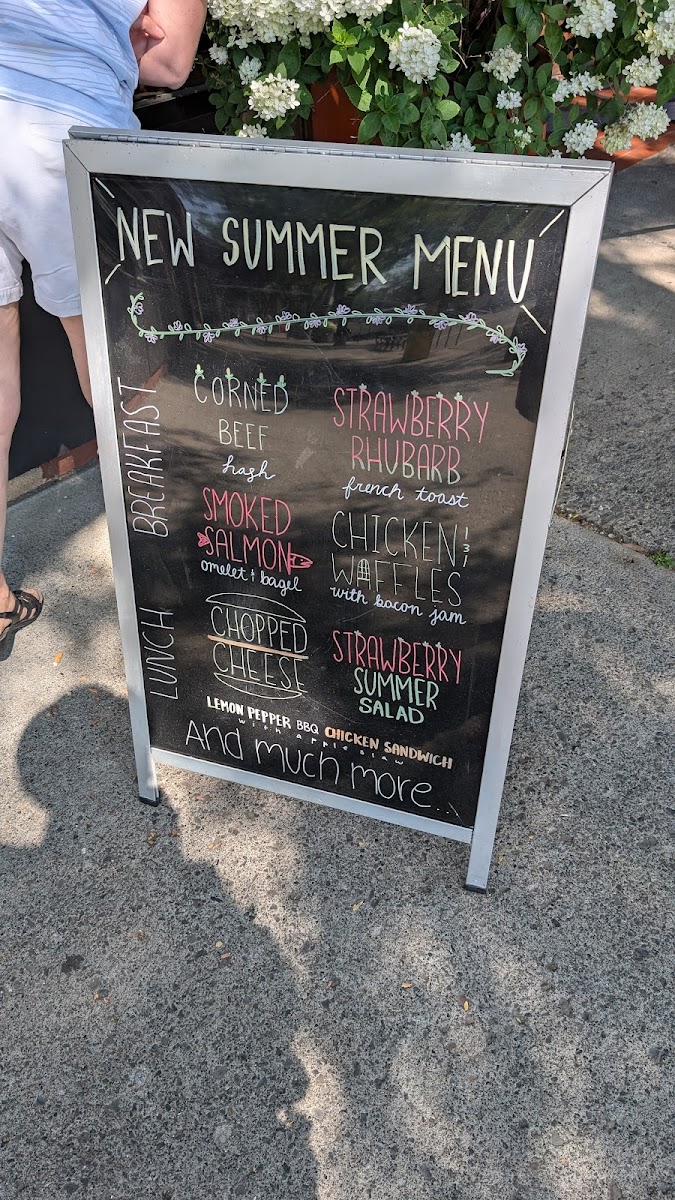 NEW SUMMER MENU
BREAKFAST
CORNED
BEEF
hash
STRAWBERRY
RHUBARB
french toast
SMOKED
SALMON
omelet & bagel
CHICKEN &
WAFFLES
with bacon jam
LUNCH
CHOPPED
CHEESE
STRAWBERRY
SUMMER
SALAD
LEMON PEPPER BBQ CHICKEN SANDWICH
with apple slaw
And much more...